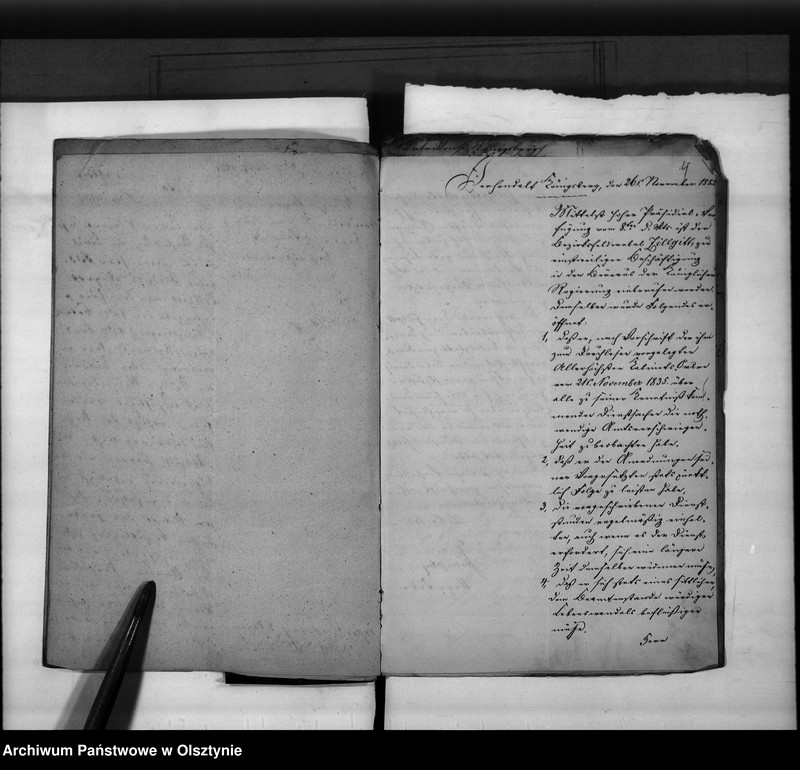 4
Verhandelt Königsberg, den 26t. November 188
Mittelst hoher Präsidial-Ver-
fügung vom 8ten d. Mts. ist der
Bezirksfeldwebel Hillgitt zur
einstweiligen Beschäftigung
in den Büreaus der Königlichen
Regierung einberufen worden.
Demselben wurde Folgendes er-
öffnet:
1, daß er, nach Vorschrift der ihm
zum Durchlesen vorgelegten
Allerhöchsten Kabinets-Ordre
vom 21t. November 1835 über
alle zu seiner Kenntniß kom-
menden Dienstsachen die noth-
wendige Amtsverschwiegen-
heit zu beobachten habe,
2, daß er den Anordnungen sei-
ner Vorgesetzten stets pünkt-
lich Folge zu leisten habe,
3, die vorgeschriebenen Dienst-
stunden regelmäßig einhal-
ten, auch wenn es der Dienst
erfordert, sich eine längere
Zeit demselben widmen müsse,
4, daß er sich stets eines sittlichen,
dem Beamtenstande würdigen
Lebenswandels befleißigen
müsse.
Archiwum Państwowe w Olsztynie